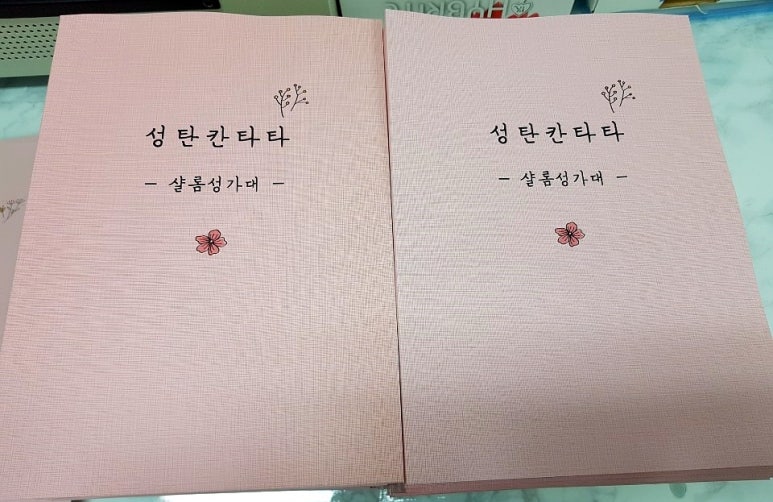 성탄칸타타
– 샬롬성가대 –
성탄칸타타
– 샬롬성가대 –